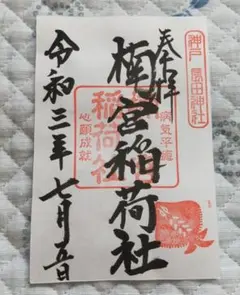 奉拝
神戸 長田神社
楠宮稲荷社
稲荷社
病気平癒
心願成就
令和三年七月五日